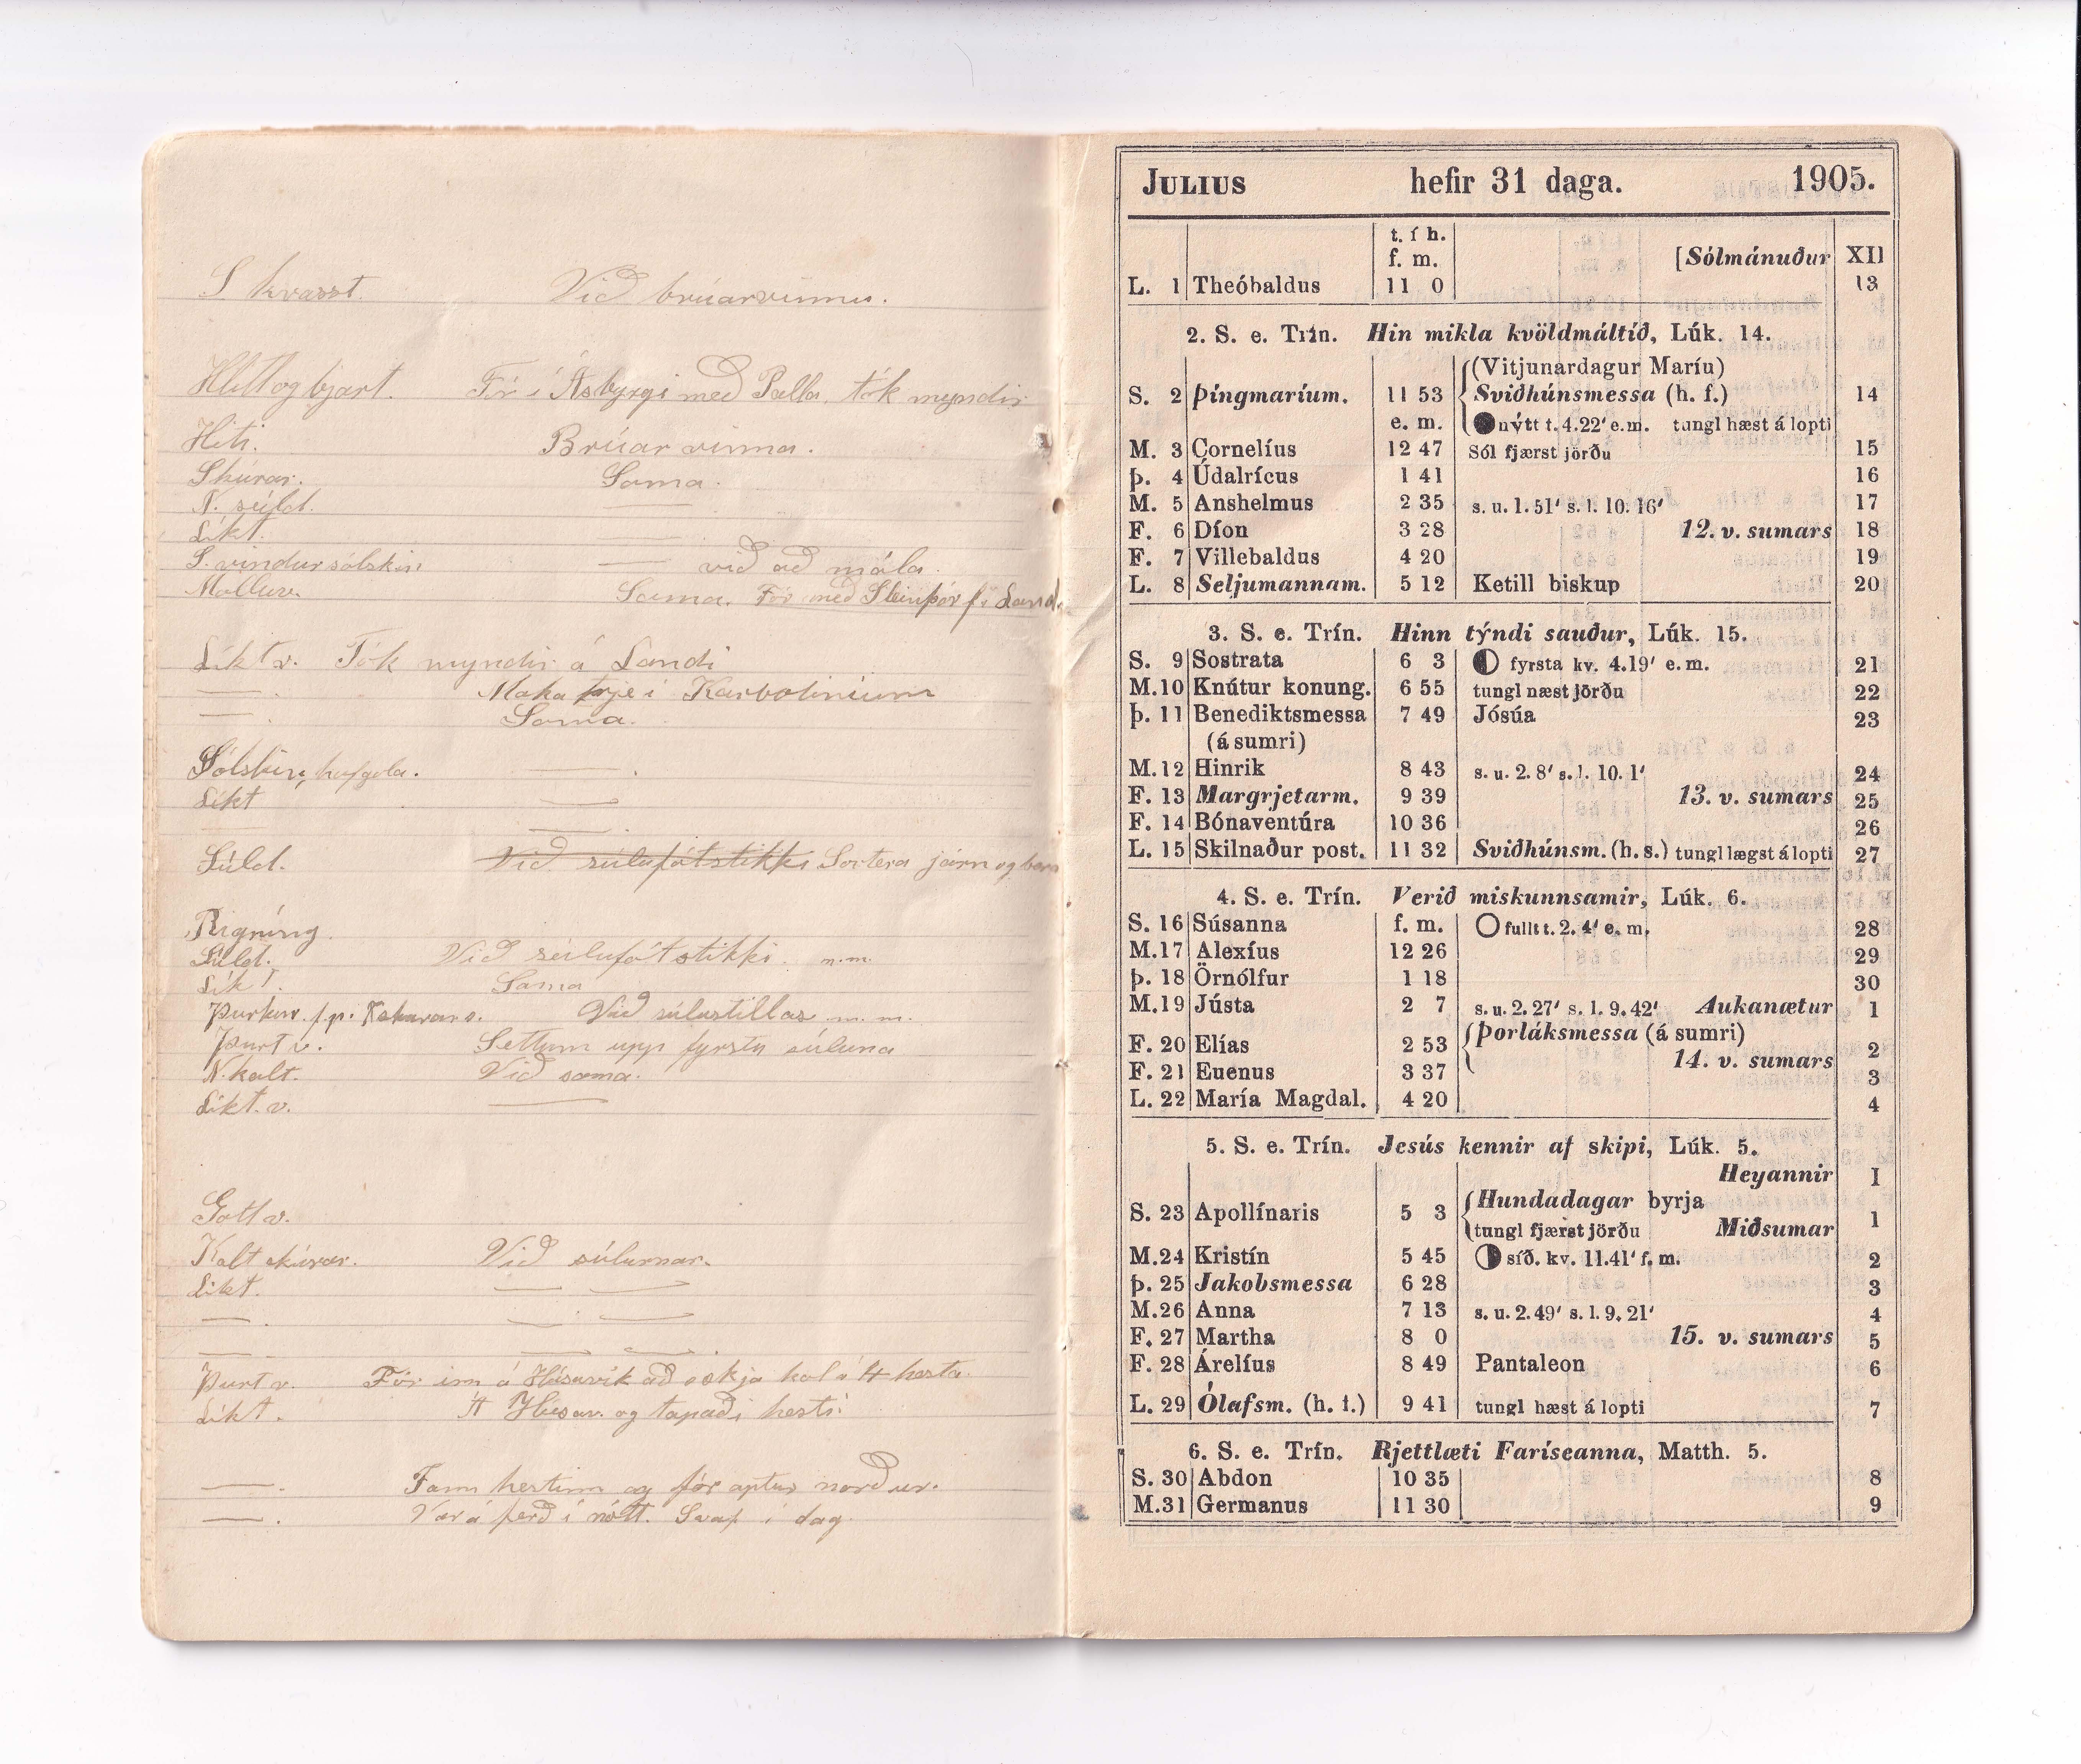 S kvasst. Við brúarvinnu.
Hlítt og bjart. Fór í Ásbyrgi með Palla, tók myndir
Hiti. Brúarvinna.
Skúrar. Sama.
N. súld. —
Líkt. —
S. vindur sólskin — við að mála.
Mollur. Sama. Fór með Steinþór f. í Land.
Líkt v. Tók myndir á Landi
— . Maka trje í Karbolinium
— . Sama.
Sólskin, hafgola. — .
Líkt —
— —
Súld. Við súlufótstikki Sortera járn og bera
Rigning.
Súld. Við súlufótstikki. m.m.
Líkt. Sama
Þurkur f.p. skúrar s. Við súlustillas m.m.
Þurt v. Settum upp fyrstu súluna
N. kalt. Við sama.
Líkt. v. —
Gott v.
Kalt skúrar. Við súlurnar.
Líkt. — —
— . — —
— — — .
Þurt v. Fór inn á Húsavík að sækja kol á 4 hesta.
Líkt. Á Húsav. og tapaði hesti
— . Fann hestinn og fór aptur norður.
— . Var á ferð í nótt. Svaf í dag.
JULIUS hefir 31 daga. 1905.
t. í h.
f. m. [Sólmánuður XII
L. 1 Theóbaldus 11 0 13
2. S. e. Trín. Hin mikla kvöldmáltíð, Lúk. 14.
(Vitjunardagur Maríu)
S. 2 Þíngmaríum. 11 53 Sviðhúnsmessa (h. f.) 14
e. m. nýtt t. 4.22' e.m. tungl hæst á lopti
M. 3 Cornelíus 12 47 Sól fjærst jörðu 15
Þ. 4 Údalrícus 1 41 16
M. 5 Anshelmus 2 35 s. u. 1. 51' s. l. 10. 16' 17
F. 6 Díon 3 28 12. v. sumars 18
F. 7 Villebaldus 4 20 19
L. 8 Seljumannam. 5 12 Ketill biskup 20
3. S. e. Trín. Hinn týndi sauður, Lúk. 15.
S. 9 Sostrata 6 3 fyrsta kv. 4.19' e. m. 21
M. 10 Knútur konung. 6 55 tungl næst jörðu 22
Þ. 11 Benediktsmessa 7 49 Jósúa 23
(á sumri)
M. 12 Hinrik 8 43 s. u. 2. 8' s. l. 10. 1' 24
F. 13 Margrjetarm. 9 39 13. v. sumars 25
F. 14 Bónaventúra 10 36 26
L. 15 Skilnaður post. 11 32 Sviðhúnsm. (h. s.) tungl lægst á lopti 27
4. S. e. Trín. Verið miskunnsamir, Lúk. 6.
S. 16 Súsanna f. m. fullt t. 2. 4' e. m. 28
M. 17 Alexíus 12 26 29
Þ. 18 Örnólfur 1 18 30
M. 19 Jústa 2 7 s. u. 2. 27' s. l. 9. 42' Aukanætur 1
Þorláksmessa (á sumri)
F. 20 Elías 2 53 14. v. sumars 2
F. 21 Euenus 3 37 3
L. 22 María Magdal. 4 20 4
5. S. e. Trín. Jesús kennir af skipi, Lúk. 5.
Heyannir I
Hundadagar byrja
S. 23 Apollínaris 5 3 tungl fjærst jörðu Miðsumar 1
M. 24 Kristín 5 45 síð. kv. 11.41' f. m. 2
Þ. 25 Jakobsmessa 6 28 3
M. 26 Anna 7 13 s. u. 2. 49' s. l. 9. 21' 4
F. 27 Martha 8 0 15. v. sumars 5
F. 28 Árelíus 8 49 Pantaleon 6
L. 29 Ólafsm. (h. f.) 9 41 tungl hæst á lopti 7
6. S. e. Trín. Rjettlæti Faríseanna, Matth. 5.
S. 30 Abdon 10 35 8
M. 31 Germanus 11 30 9